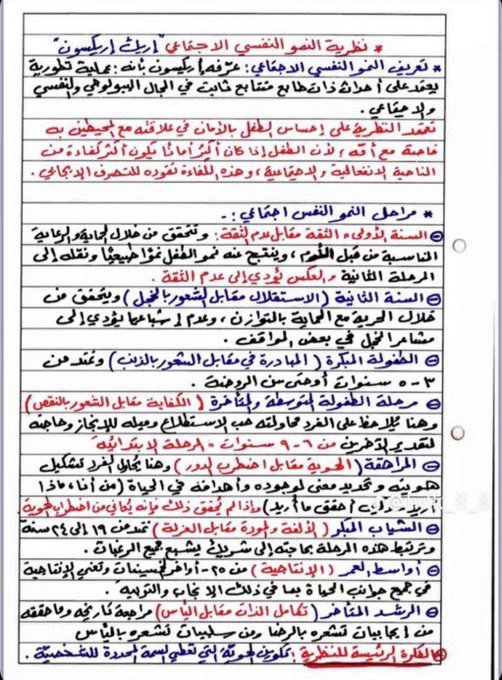 * نظرية النمو النفسي الاجتماعي "إريك إريكسون"
* تعريف النمو النفسي الاجتماعي: عرّفه أريكسون بأنه: عملية تطورية
يعتمد على أحداث ذات طابع متتابع ثابت في المجال البيولوجي والنفسي
والاجتماعي.
تعتمد النظرية على إحساس الطفل بالأمان في علاقته مع المحيطين به
خاصة مع أمه، لأن الطفل إذا كان أكثر أماناً يكون أكثر كفاءة من
الناحية الانفعالية والاجتماعية، وهذه الكفاءة تقوده للتصرف الإيجابي.
* مراحل النمو النفس اجتماعي:-
السنة الأولى: الثقة مقابل عدم الثقة: وتتحقق من خلال الحماية والرعاية
المناسبة من قبل الأم، وينتج عنه نمو الطفل نمواً طبيعياً ونقله إلى
المرحلة الثانية والعكس يؤدي إلى عدم الثقة.
السنة الثانية (الاستقلال مقابل الشعور بالخجل) ويتحقق من
خلال الحرية مع الحماية بالتوازن، وعدم إشباعها يؤدي إلى
مشاعر الخجل في بعض المواقف.
الطفولة المبكرة (المبادرة في مقابل الشعور بالذنب) وتمتد من
٣-٥ سنوات أو حتى سن الروضة.
مرحلة الطفولة المتوسطة والمتأخرة (الكفاية مقابل الشعور بالنقص)
وهنا يُلاحظ على الفرد محاولته حب الاستطلاع وميله للإنجاز وحاجته
لتقدير الآخرين من ٦-٩ سنوات = المرحلة الابتدائية
المراهقة (الهوية مقابل اضطراب الدور) وهنا يحاول الفرد تشكيل
هويته وتحديد معنى لوجوده وأهدافه في الحياة (من أنا، ماذا
أريد، أحقق ما أريد) وإذا لم يُحقق ذلك فإنه يُعاني من اضطراب الهوية
الشباب المبكر (الألفة والمودة مقابل العزلة) تمتد من ١٩ إلى ٢٤ سنة
وترتبط هذه المرحلة بحاجته إلى شريك يشبع جميع الرغبات.
أواسط العمر (الإنتاجية) من ٢٥- أواخر الخمسينات وتعني الإنتاجية
في جميع جوانب الحياة بما في ذلك الإنجاب والتربية.
الرشد المتأخر (تكامل الذات مقابل اليأس) مراجعة تاريخه وما حققه
من إيجابيات تشعره بالرضا ومن سلبيات تشعره باليأس
الفكرة الرئيسة للنظرية: تكوين الهوية التي تعطي السمة المحددة للشخصية.